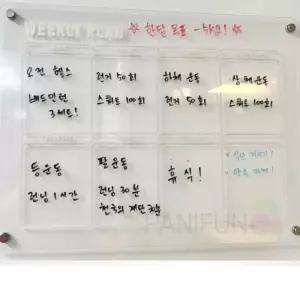 WEEKLY PLAN
☆ 한달 목표 -5kg! ☆
오전 헬스
배드민턴
3세트!
런지 50회
스쿼트 100회
하체 운동
런지 50회
상체 운동
스쿼트 100회
등운동
런닝 1시간
팔 운동
런닝 30분
천국의 계단 30분
휴식!
PANIFUN